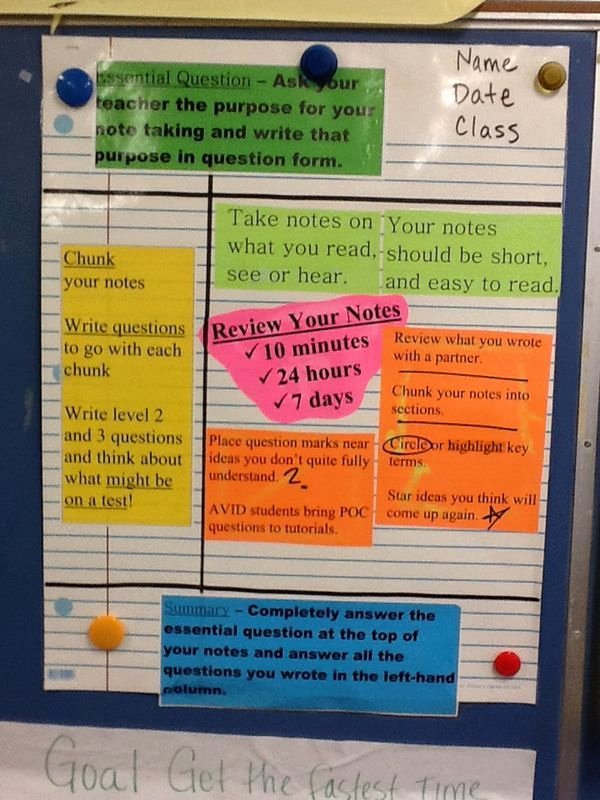 Essential Question – Ask your
teacher the purpose for your
note taking and write that
purpose in question form.
Name
Date
Class
Take notes on
what you read,
see or hear.
Your notes
should be short,
and easy to read.
Chunk
your notes
Write questions
to go with each
chunk
Write level 2
and 3 questions
and think about
what might be
on a test!
Review Your Notes
✓ 10 minutes
✓ 24 hours
✓ 7 days
Place question marks near
ideas you don't quite fully
understand. ?
AVID students bring POC
questions to tutorials.
Review what you wrote
with a partner.
Chunk your notes into
sections.
Circle or highlight key
terms.
Star ideas you think will
come up again.
Summary – Completely answer the
essential question at the top of
your notes and answer all the
questions you wrote in the left-hand
column.
Goal Get the fastest Time